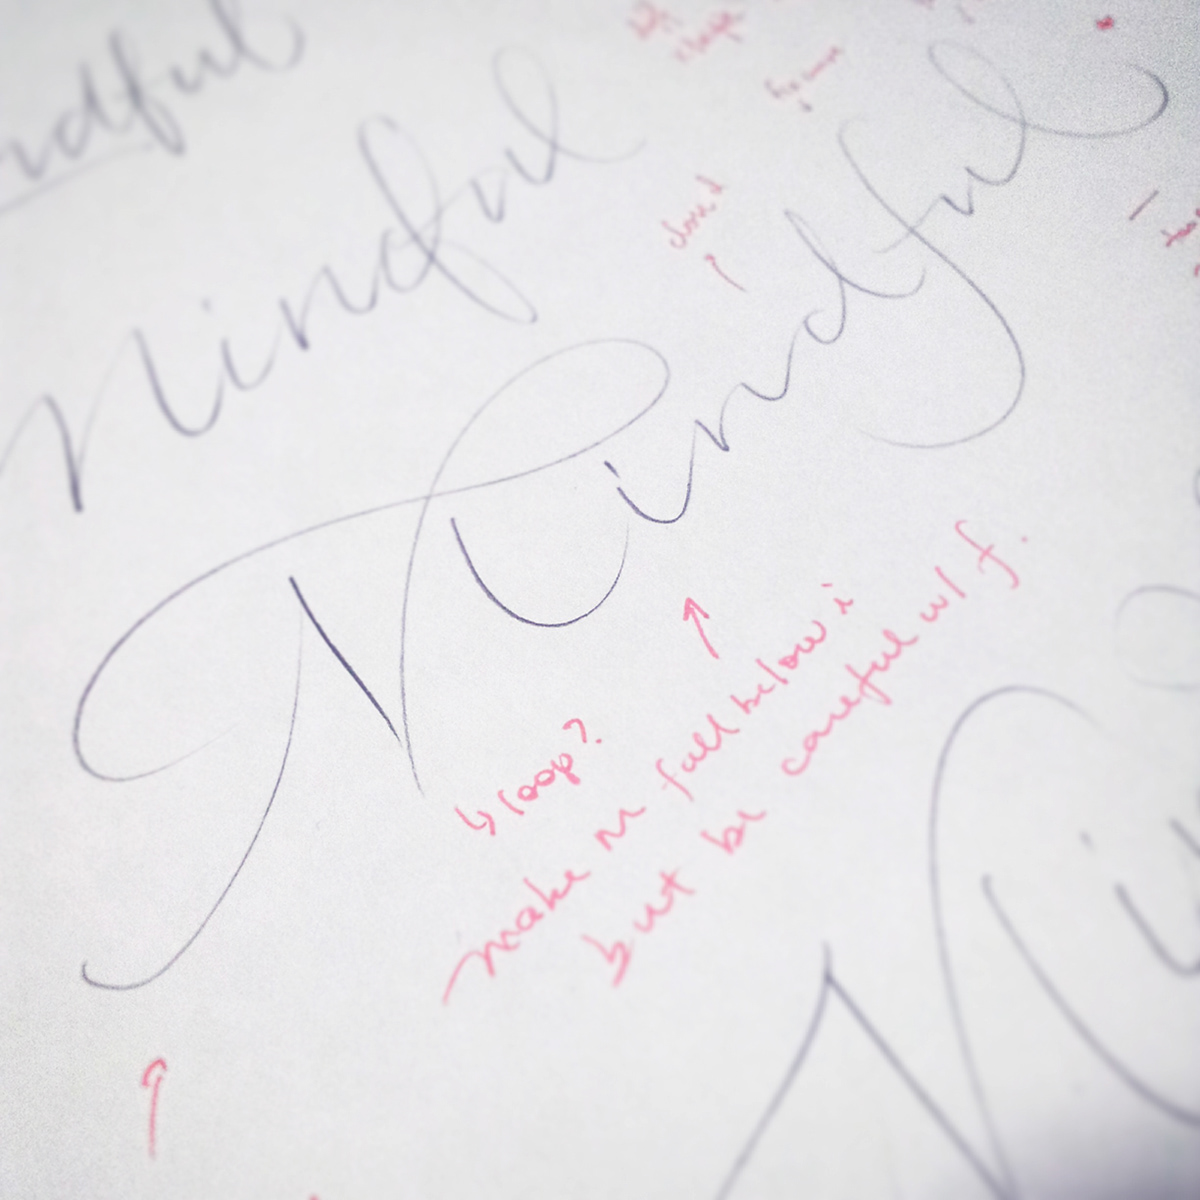 ndful
Mindful
closed
Mindful
↳ loop?
make n fall below i
but be careful w/ f.
Mi